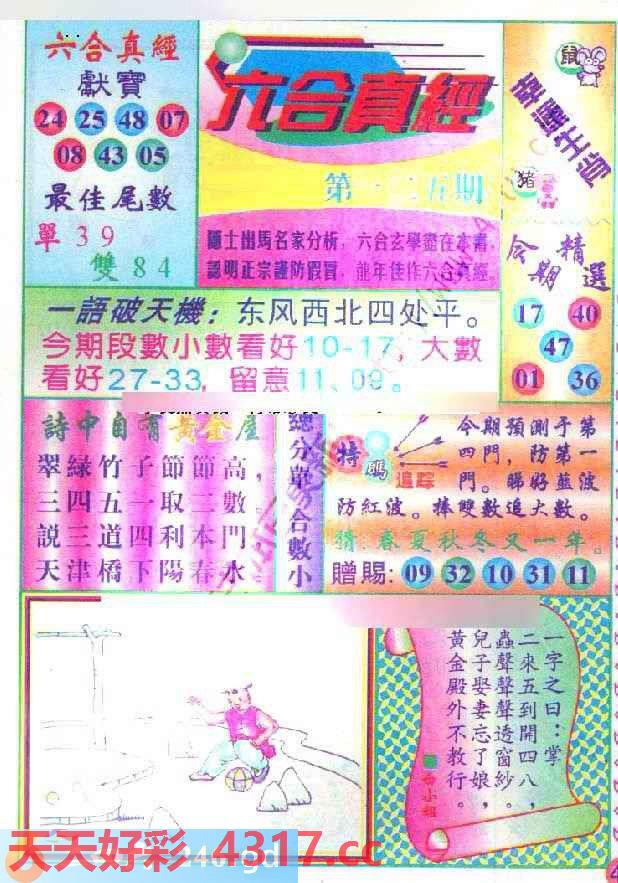 六合真經
獻寶
24 25 48 07
08 43 05
最佳尾數
單39
雙84
六合真經
第一二五期
隱士出馬名家分析，六合玄學盡在本書，
認明正宗謹防假冒，龍年佳作六合真經。
鼠
幸運生肖
豬
今期精選
17 40
47
01 36
一語破天機：东风西北四处平。
今期段數小數看好10-17，大數
看好27-33，留意11、09。
詩中自有黃金屋
翠綠竹子節節高，
三四五一取二數。
説三道四利本門，
天津橋下陽春水。
總分單合數小
特碼追踪
今期預測于第
四門，防第一
門。睇好藍波
防紅波。捧雙數追大數。
猜：春夏秋冬又一年。
贈賜：09 32 10 31 11
一字之曰：掌
二來五到開四八，
蟲聲聲聲透窗紗。
兒子娶妻忘了娘，
黃金殿外不教行。
天天好彩 4317.cc